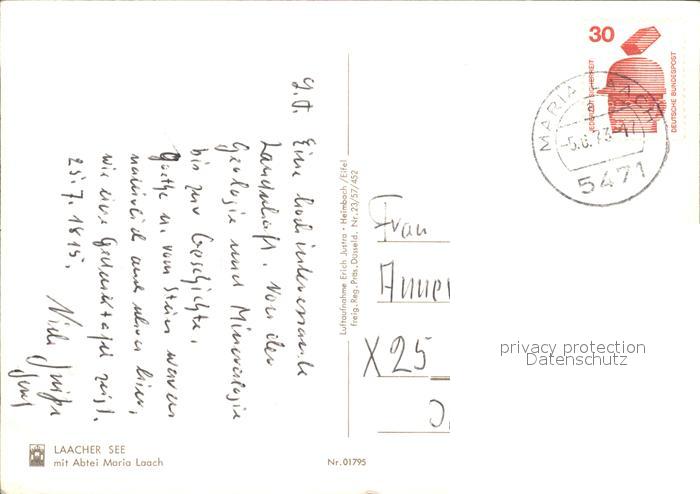 L. A. Eine hochinteressante
Landschaft. Von der
Geologie und Mineralogie
bis zur Geschichte.
Goethe u. vom Stein waren
natürlich auch schon hier,
wie eine Gedenktafel zeigt.
25.7.1815.
Viele Grüße
LAACHER SEE
mit Abtei Maria Laach
Luftaufnahme Erich Justra · Heimbach/Eifel
Freig. Reg. Präs. Düsseld. Nr. 23/57/452
Nr. 01795
30
JEDERZEIT SICHERHEIT
DEUTSCHE BUNDESPOST
MARIA LAACH
5471
Frau
Anne
X25
privacy protection
Datenschutz